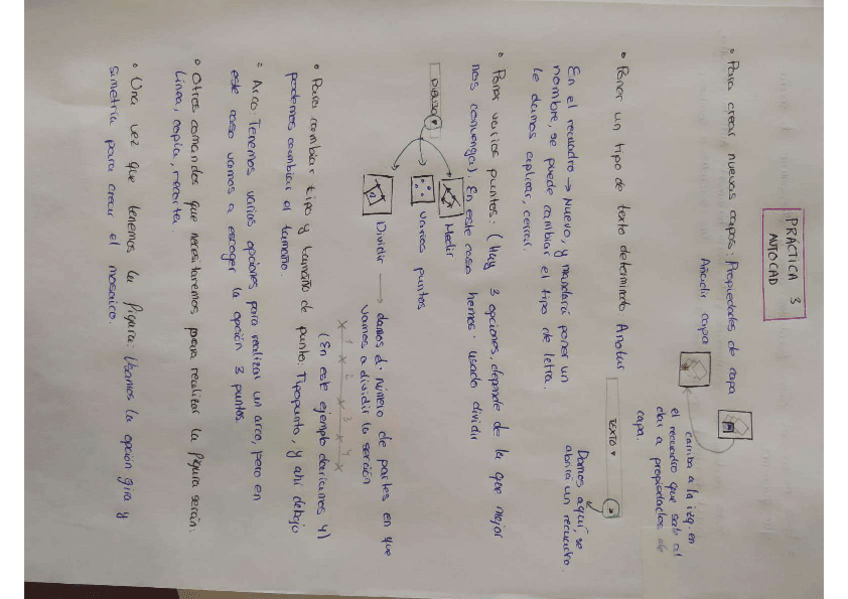 PRÁCTICA 3
AUTOCAD
• Para crear nuevas capas: Propiedades de capa
Añadir capa
arriba a la izq. en
el recuadro que sale al
dar a propiedades de
capa.
• Poner un tipo de texto determinado: Anotar
TEXTO ▾
Damos aquí, se
abrirá un recuadro.
En el recuadro → Nuevo, y mandará poner un
nombre, se puede cambiar el tipo de letra.
le damos aplicar, cerrar.
• Poner varios puntos: (Hay 3 opciones, depende de la que mejor
nos convenga). En este caso hemos usado dividir
DIBUJO ▾
Medir
varios puntos
Dividir → damos el número de partes en que
vamos a dividir la sección
x 1 x 2 x 3 x 4 x
(En este ejemplo daríamos 4)
• Para cambiar tipo y tamaño de punto: Tipopunto, y ahí debajo
podemos cambiar el tamaño.
• Arco: Tenemos varias opciones para realizar un arco, pero en
este caso vamos a escoger la opción 3 puntos.
• Otros comandos que necesitaremos para realizar la figura serán:
Línea, copia, recorta.
• Una vez que tenemos la figura: Usamos la opción gira y
simetría para crear el mosaico.